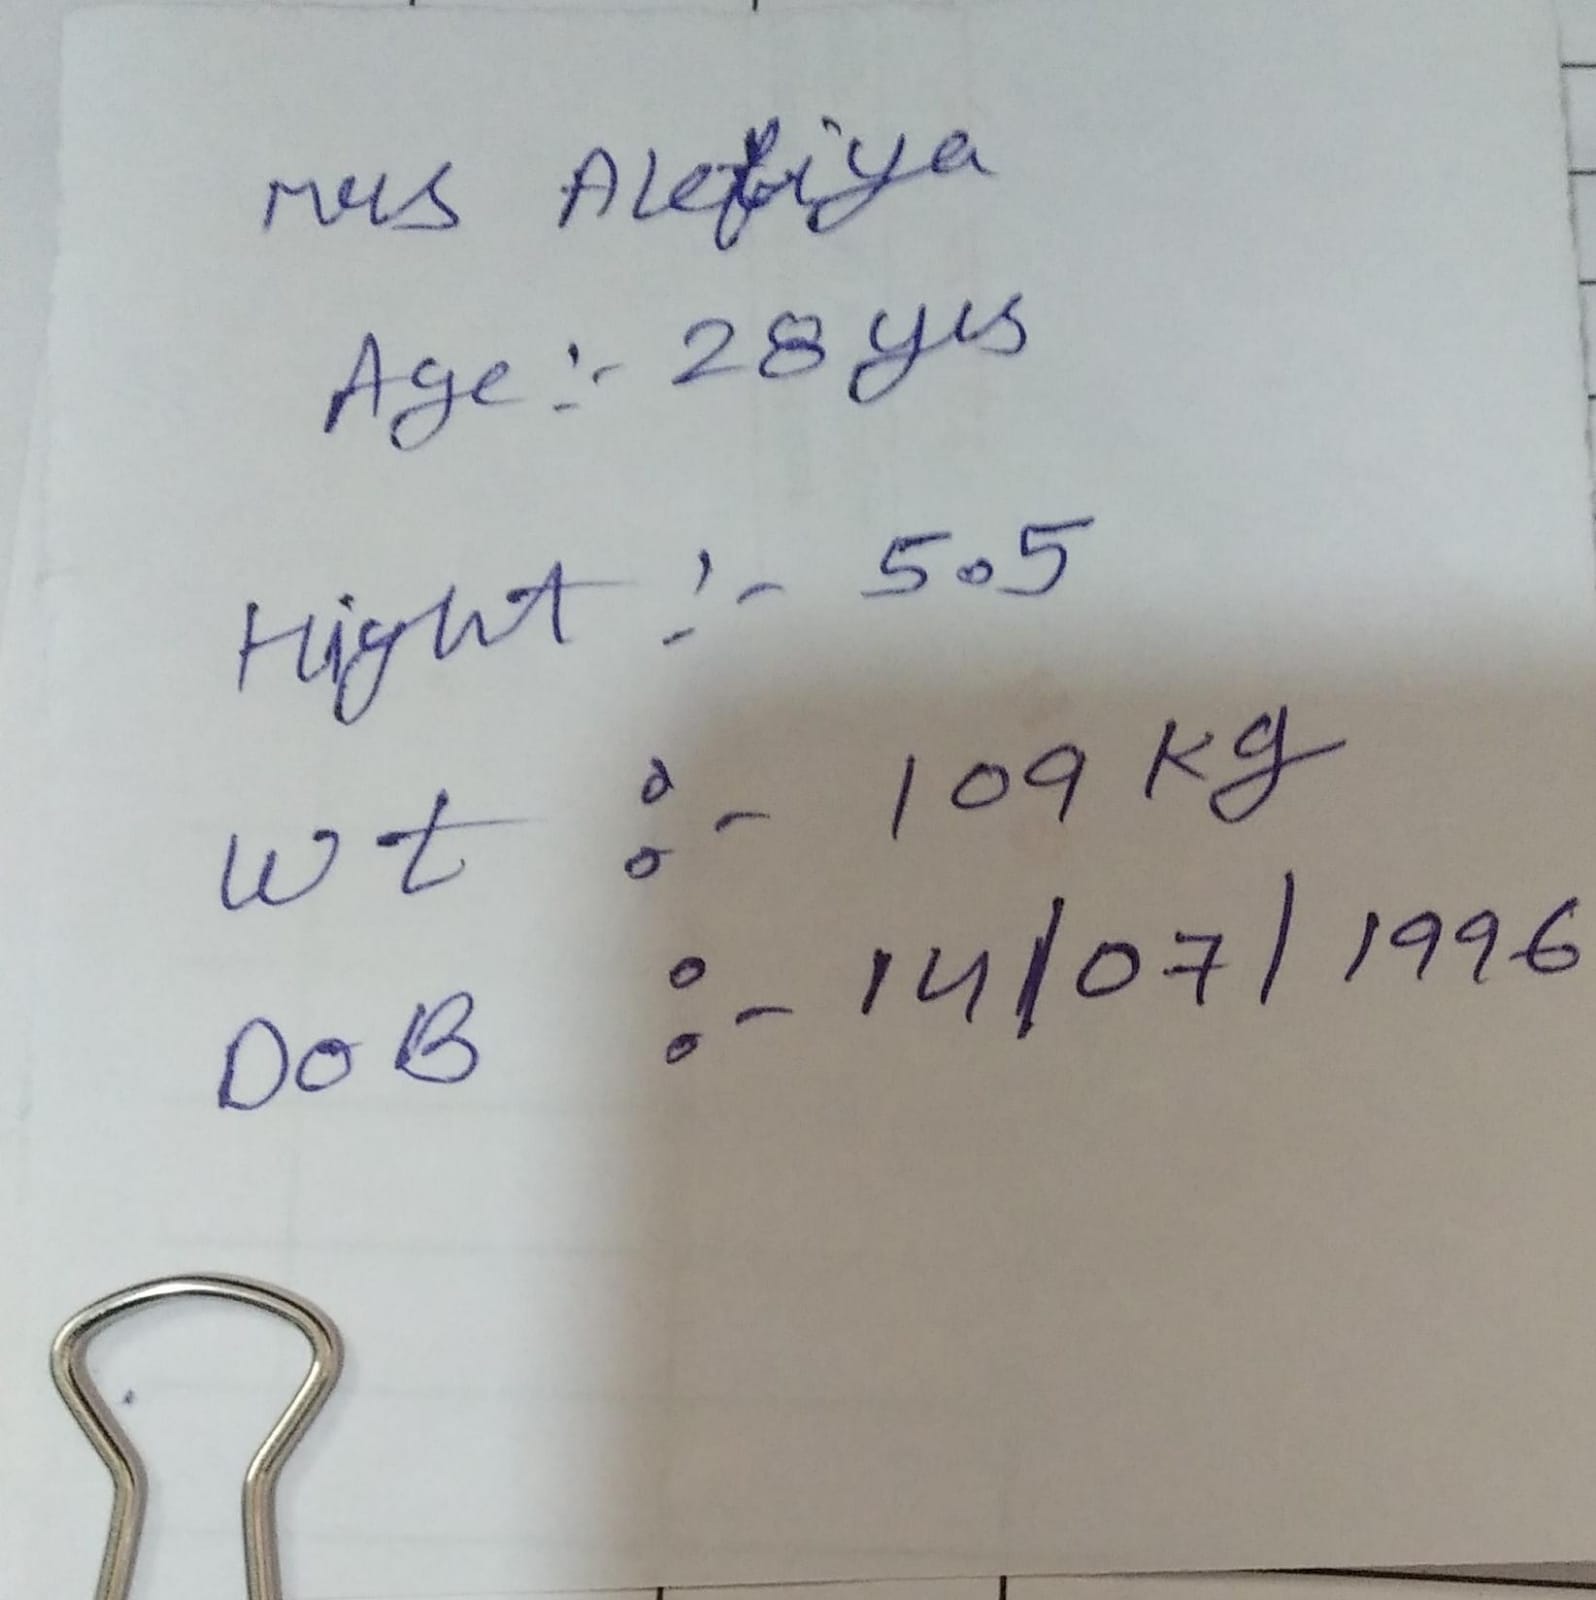 Mrs Alefiya
Age:- 28 yrs
Hight :- 5.5
Wt :- 109 kg
DoB :- 14/07/1996